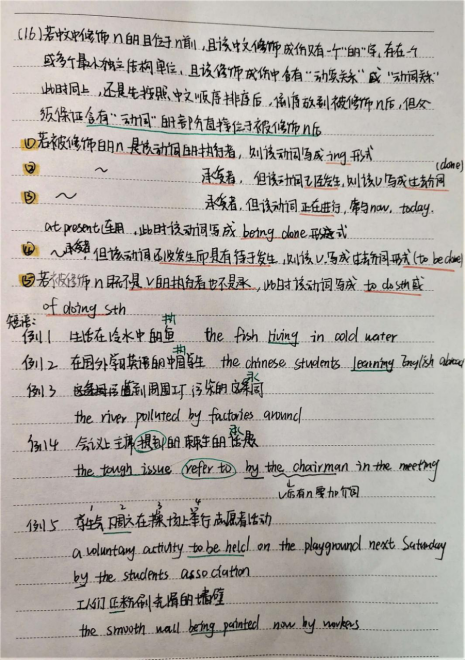 (16) 若中文中修饰n的且位于n前，且该中文修饰成份只有一个"的"字，存在一个
或多个最小独立结构单位，且该修饰成份中含有"动宾关系"或"动词关系"
此时同上，还是先按照中文顺序排序后，倒序放到被修饰n后，但必
须保证含有"动词"的部分直接位于被修饰n后
① 若被修饰的n是该动词的执行者，则该动词写成ing形式
② ～ 承受者，但该动词已经发生，则该V写成过去分词 (done)
③ ～ 承受者，但该动词正在进行，常与now, today,
at present连用，此时该动词写成 being done 形式
④ ～承受者，但该动词还没发生而是有待于发生，则该V.写成过去分词形式(to be done)
⑤ 若被修饰n既不是V的执行者也不是承，此时该动词写成 to do sth或
of doing sth
短语：
例1 生活在冷水中的鱼 执 the fish living in cold water
例2 在国外学习英语的中国学生 执 the chinese students learning English abroad
例3 被周围工厂污染的这条河 承
the river polluted by factories around
例4 会议上主席提到的棘手的话题 承
the tough issue refer to by the chairman in the meeting
↓后有n要加介词
例5 学生会1下周六2在操场上3举行4志愿者活动
a voluntary activity to be held on the playground next Saturday
by the students association
工人们正粉刷光滑的墙壁
the smooth wall being painted now by workers